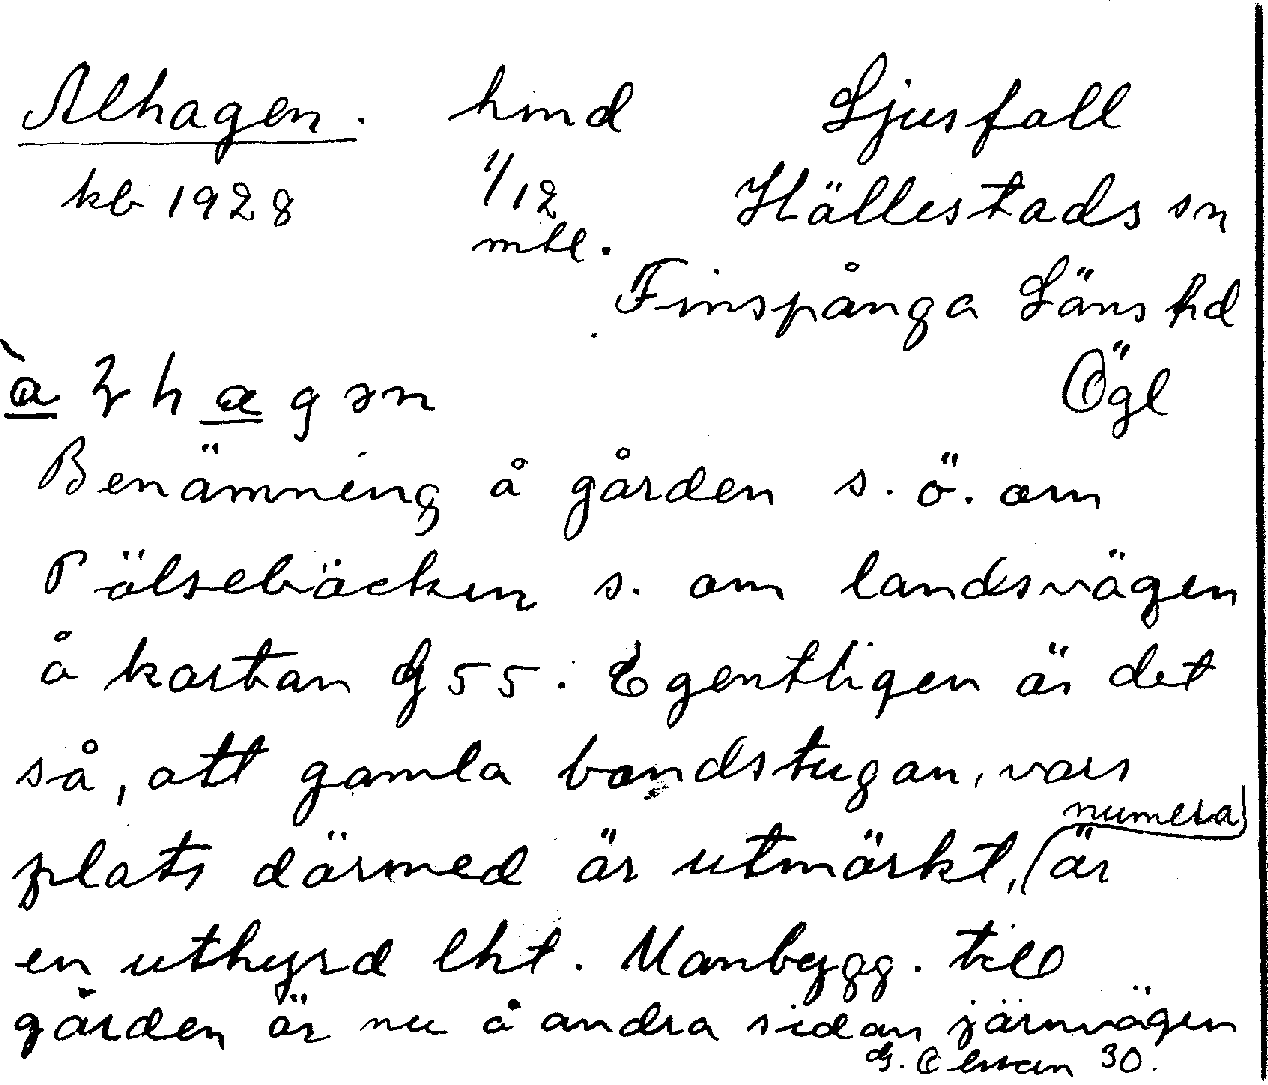 Alhagen. hmd Ljusfall
kb 1928 1/12 Hällestads sn
mtl.
Finspånga Läns hd
Ögl
Benämning å gården s. ö. om
Pålsebäcken s. om landsvägen
å kartan G 55. Egentligen är det
så, att gamla bondstugan, vars
numera
plats därmed är utmärkt, är
en uthyrd lht. Manbygg. till
gården är nu å andra sidan järnvägen
30.